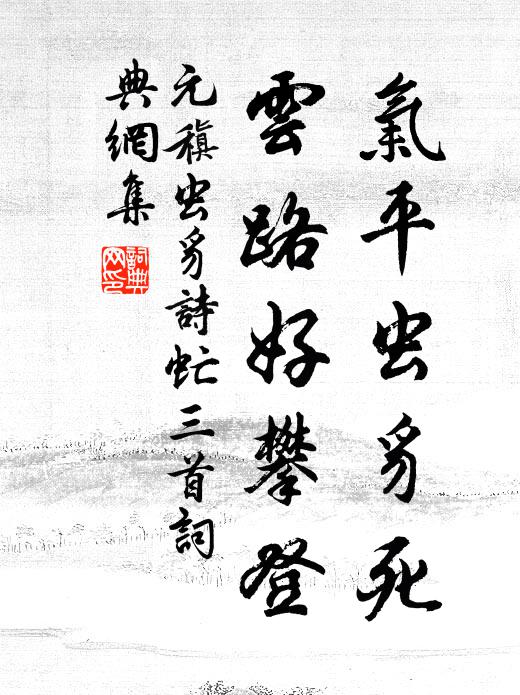 氣平虫豸死
雲路好攀登
元稹虫豸詩虻三首詞
典網集
詞典
網印